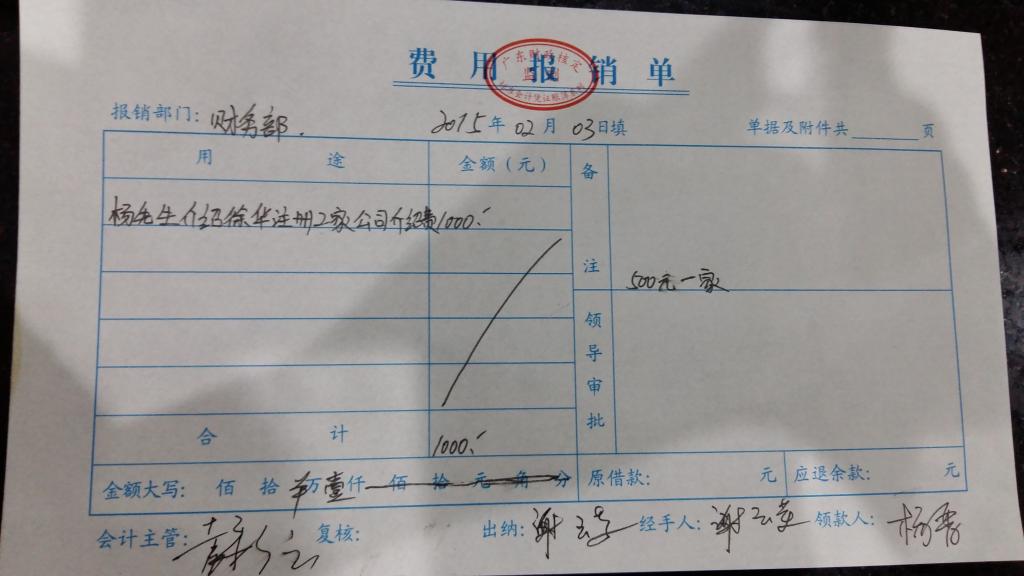 费用报销单
广东财政核定
报销部门：财务部. 2015年02月03日填 单据及附件共 页
用 途 金额（元） 备注
杨先生介绍徐华注册2家公司介绍费 1000.-
500元一家
领导审批
合 计 1000.-
金额大写： 佰 拾 万 壹仟 佰 拾 元 角 分 原借款： 元 应退余款： 元
会计主管： 复核： 出纳：谢 经手人：谢 领款人：杨